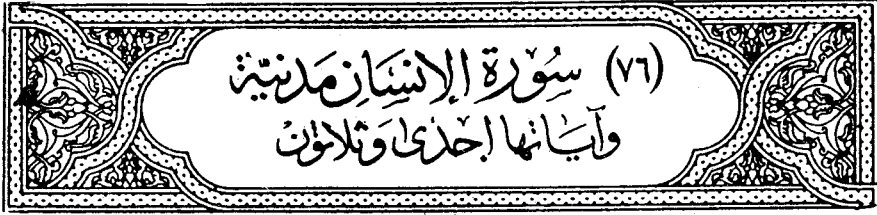 (٧٦) سُوۡرَةِ الإِنسَانِ مَدَنيَّةٌ
وَآيَانهَا إِحْدَىٰ وَثَلاثُونَ